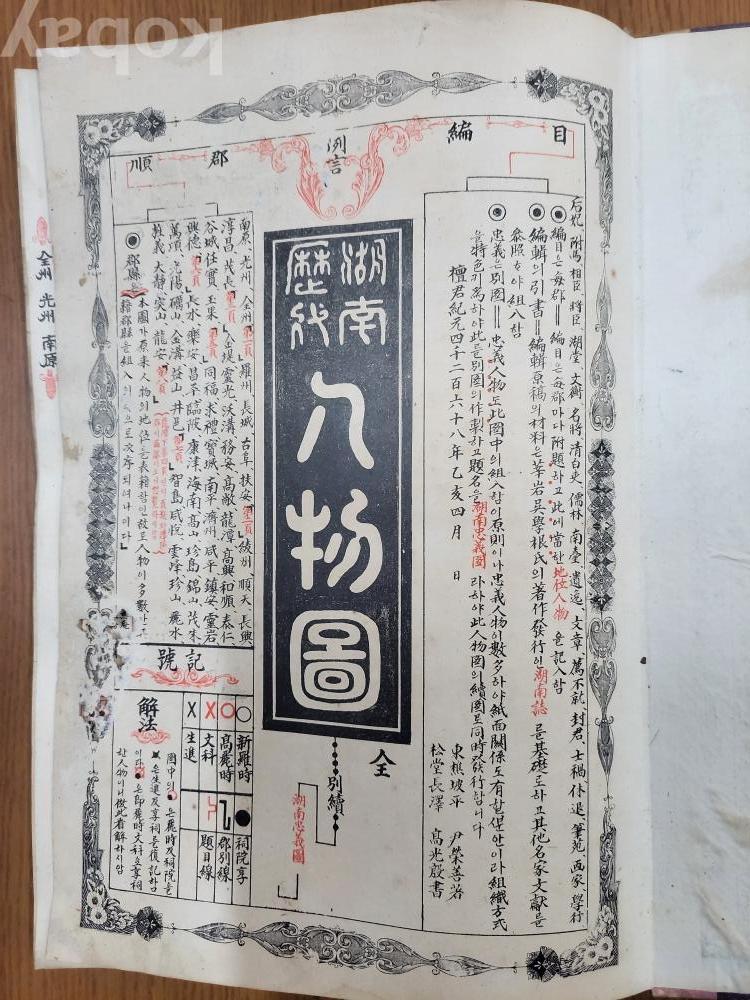 Kobay
目編
例言
郡順
后妃 附馬 相臣 將臣 湖堂 文衡 名將 清白吏 儒林 南臺 遺逸 文章 薦不就 封君 士禍 休退 筆苑 画家 學行
編目은每郡=編目은每郡마다附題하고此에當한地位人物을記入함
編輯의引書=編輯原稿의材料은莘岩吳學根氏의著作發行인湖南誌를基礎로하고其他名家文獻를
參照하야組入함
忠義은別圖=忠義人物도此圖中의組入함이原則이나忠義人物이數多하야紙面關係도有할뿐안이라組織方式
을特色키爲하야此를別圖의作製하고題名을湖南忠義圖라하야此人物圖의續圖로同時發行합니다
檀君紀元四千二百六十八年乙亥四月 日
東樵坡平 尹榮善著
松堂長澤 高光殷書
湖南
歷代
人物圖
全
別續
湖南忠義圖
南原、光州、全州 羅州、長城、古阜、扶安 綾州、順天、長興、
淳昌、茂長 金堤、靈光、沃溝、務安、高敞、龍潭、高興、和順、泰仁
谷城、任實、玉果 同福、求禮、寶城、南平、濟州、咸平、鎮安、靈岩
興德 長水、樂安、昌平、臨陂、康津、海南、高山、珍島、錦山、茂朱
萬頃、光陽、礪山、金溝、益山、井邑 智島、咸悅、雲峰、珍山、麗水
旌義、大靜、突山、龍安
郡縣은本圖가原來人物의地位를表籍함인故로人物이多數한
籍郡縣을組入 으로次序되여나이다
記號
新羅時
高麗時
文科
生進
祠院享
郡別線
題目線
解法
圖中의 은麗時及祠院享
은生進及享祠를復記하함
이다 은即麗時文科及享祠
한人物이니倣此看解하시압
全州 光州 南原